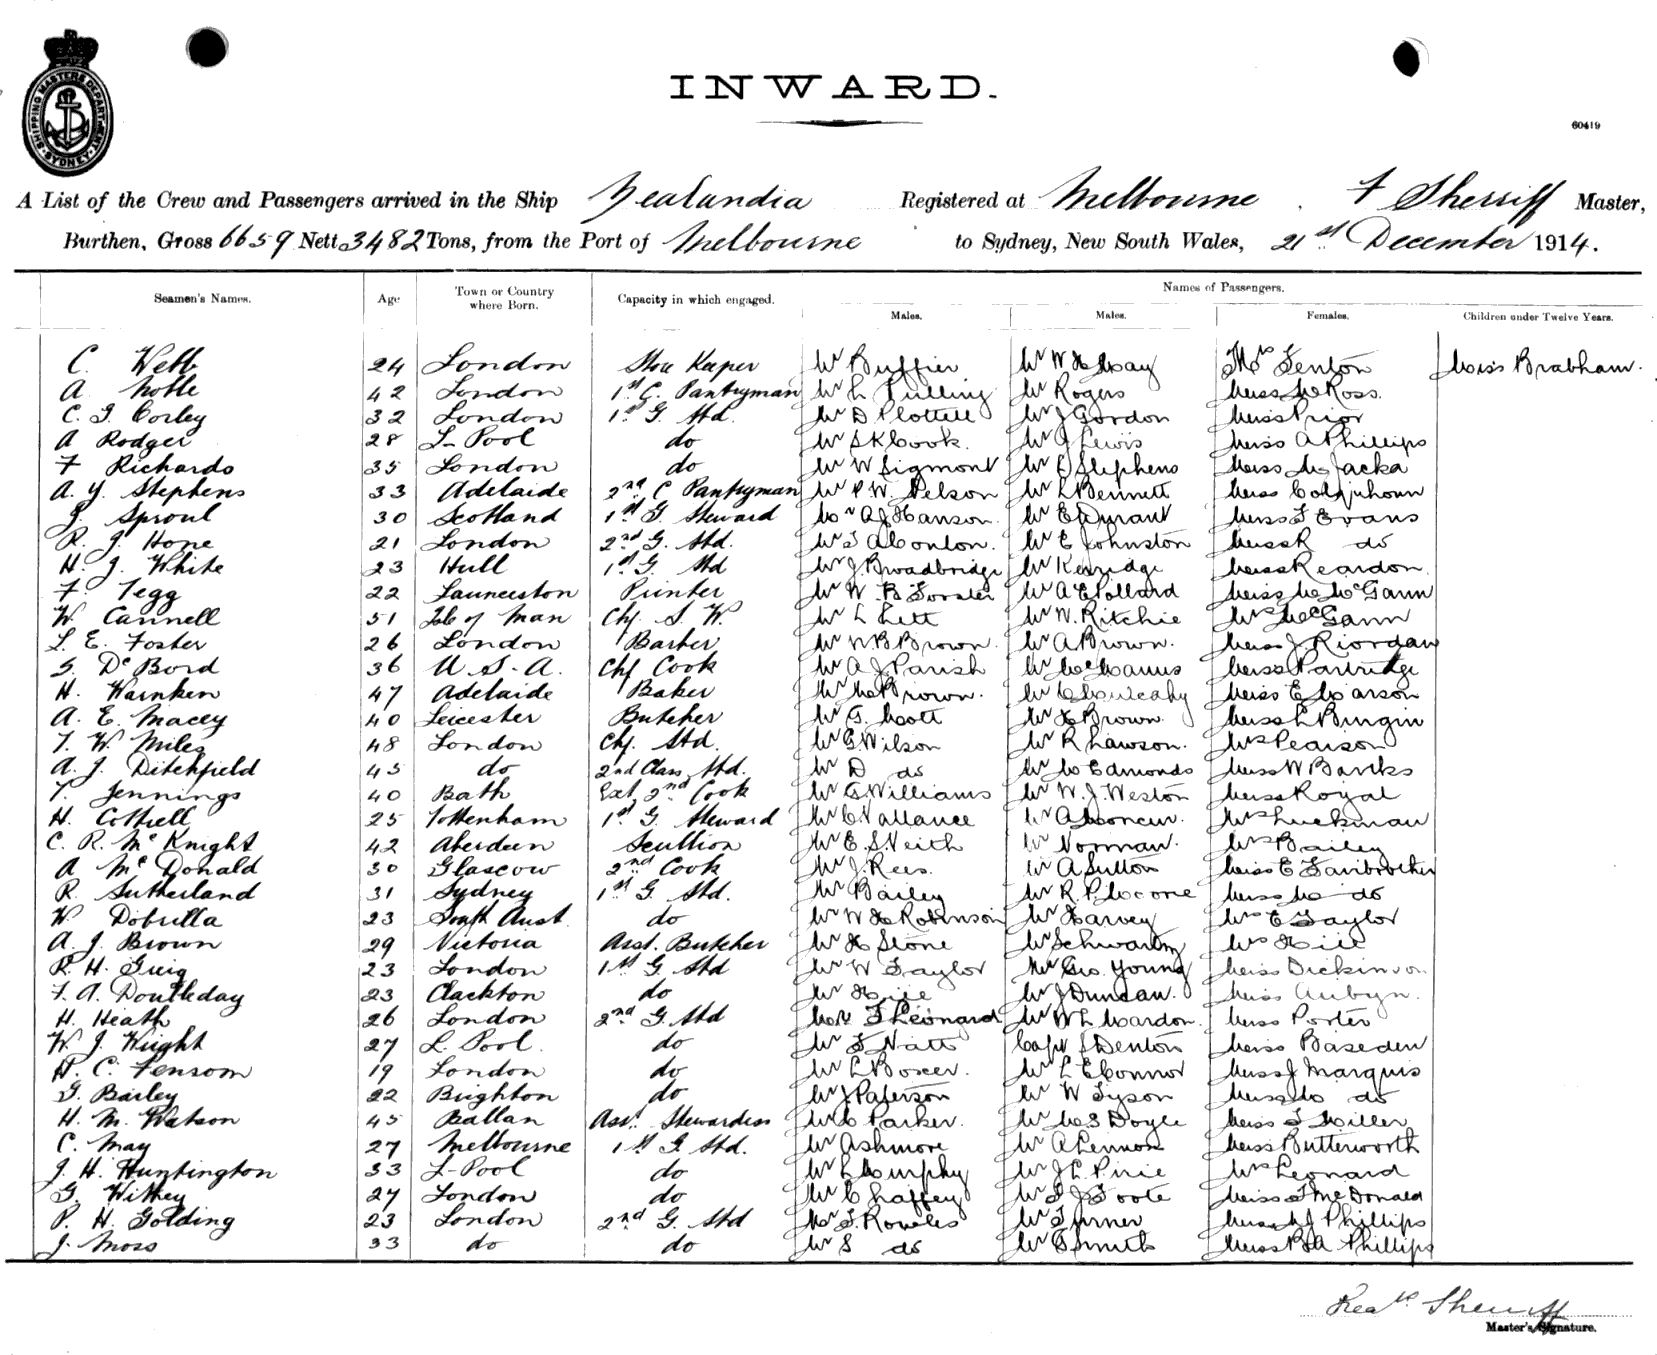 SHIPPING MASTERS DEPARTMENT. SYDNEY
INWARD.
60419
A List of the Crew and Passengers arrived in the Ship Zealandia Registered at Melbourne. F Sherriff Master,
Burthen, Gross 6659 Nett 3482 Tons, from the Port of Melbourne to Sydney, New South Wales, 21st December 1914.
Seamen's Names. Age Town or Country where Born. Capacity in which engaged. Names of Passengers.
Males. Males. Females. Children under Twelve Years.
C. Webb 24 London Store Keeper Mr Buffier Mr W H May Mrs Fenton Miss Brabham.
A. Noble 42 London 1st C. Pantryman Mr L Pulling Mr Rogers Miss M Ross.
C. G. Corley 32 London 1st G. Std. Mr D Plottell Mr J Gordon Miss Prior
A Rodger 28 L-Pool do Mr S K Cook. Mr J Lewis Miss A Phillips
F Richards 35 London do Mr W Sigmont Mr L Stephens Miss M Jacka
A. Y. Stephens 33 Adelaide 2nd C Pantryman Mr P. W. Nelson Mr L Bennett Miss Colquhoun
J. Sproul 30 Scotland 1st G. Steward Mr A J Hanson. Mr E Durant Miss F Evans
R. J. Hone 21 London 2nd G. Std. Mr T A Conlon. Mr E Johnston Miss R do
H. J. White 23 Hull 1st G. Std Mr J. Broadbridge Mr Kerridge Miss Reardon.
F. Tegg 22 Launceston Printer Mr W. B. Forster Mr A E Pollard Miss M McGann
W. Cannell 51 Isle of Man Chf. S. W. Mr L Lett Mr N. Ritchie Mrs McGann
L. E. Foster 26 London Barber Mr N. B. Brown. Mr A Brown. Miss J Riordan
S. De Bord 36 U S. A. Chf Cook Mr A J Parish Mr McManus Miss Partridge
H. Warnken 47 Adelaide Baker Mr M Brown. Mr C Mulcahy Miss E Marson
A. E. Macey 40 Leicester Butcher Mr G. Scott Mr H Brown. Miss L Bingin
T. W. Miles 48 London Chf. Std. Mr G Wilson Mr R Lawson. Mrs Pearson
A. J. Ditchfield 45 do 2nd Class Std. Mr D do Mr M Edmonds Miss W Banks
T. Jennings 40 Bath Ext. 2nd Cook Mr G Williams Mr W. J. Weston Miss Royal
H. Cottrell 25 Tottenham 1st G. Steward Mr C Vallance Mr A Mrs Luckman
C. R. McKnight 42 Aberdeen Scullion Mr E. S. Veith Mr Norman. Mrs Bailey
A McDonald 30 Glascow 2nd Cook Mr J. Rees. Mr A Sutton Miss E Fairbrother
R. Sutherland 31 Sydney 1st G. Std. Mr Bailey Mr R. P. Moore Miss M do
W. Dobrilla 23 South Aust. do Mr W H Robinson Mr Harvey Mrs E Taylor
A. J. Brown 29 Victoria Asst. Butcher Mr H Stone Mr Schwartz Mrs Hill
R. H. Greig 23 London 1st G. Std Mr W Taylor Mr Geo. Young Miss Dickinson.
F. A. Doubleday 23 Clackton do Mr Hill Mr J Duncan. Miss Aubyn.
H. Heath 26 London 2nd G. Std Mr F Leonard Mr W L Mardon. Miss Porter
W. J. Wright 27 L. Pool. do Mr F Natt Capt S Denton Miss Baseden
H. C. Fensom 19 London do Mr L Boxer. Mr L E Connor Miss J Marquis
G. Bailey 22 Brighton do Mr J Paterson Mr W Tyson Miss M do
H. M. Watson 45 Ballan Asst. Stewardess Mr C Parker. Mr M S Doyle Miss F Miller
C. May 27 Melbourne 1st G. Std. Mr Ashmore Mr A Lennon Miss Butterworth
J. H. Huntington 33 L-Pool do Mr L Murphy Mr J L. Pirie Mrs Leonard
G. Withey 27 London do Mr Chaffey Mr F J Foote Miss F McDonald
P. H. Golding 23 London 2nd G. Std Mr F. Rowles Mr Turner Miss M J Phillips
J. Moss 33 do do Mr S do Mr C Smith Miss B A Phillips
Fredk Sherriff
Master's Signature.